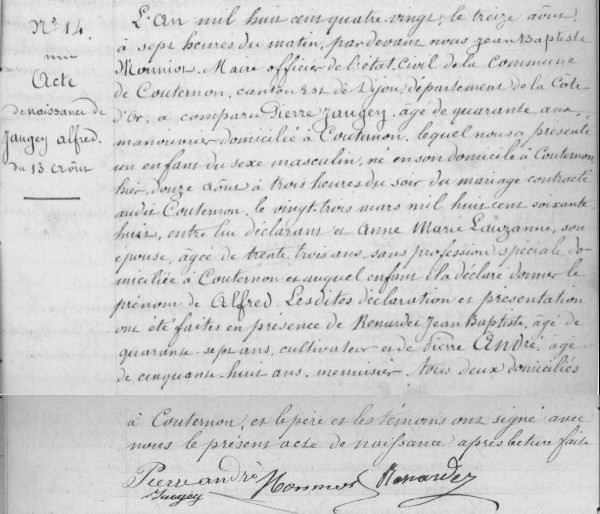 N° 14.
Acte
de naissance de
Jaugey Alfred.
du 13 Août
L'An mil huit cent quatre vingt, le treize août,
à sept heures du matin, par devant nous Jean Baptiste
Monniot, Maire officier de l'état civil de la Commune
de Couternon, canton Est de Dijon, département de la Côte
d'Or, a comparu Pierre Jaugey, âgé de quarante ans
manouvrier domicilié à Couternon, lequel nous a présenté
un enfant du sexe masculin, né en son domicile à Couternon
hier, douze août à trois heures du soir du mariage contracté
audit Couternon, le vingt trois mars mil huit cent soixante
huit, entre lui déclarant et Anne Marie Lauzanne, son
épouse, âgée de trente trois ans, sans profession spéciale, do-
miciliée à Couternon et auquel enfant il a déclaré donner le
prénom de Alfred. Lesdites déclaration et présentation
ont été faites en présence de Renardet Jean Baptiste, âgé de
quarante-sept ans, cultivateur et de Pierre André, âgé
de cinquante huit ans, menuisier, tous deux domiciliés
à Couternon, et le père et les témoins ont signé avec
nous le présent acte de naissance après lecture faite
Pierre andré Monniot Renardet
Jaugey